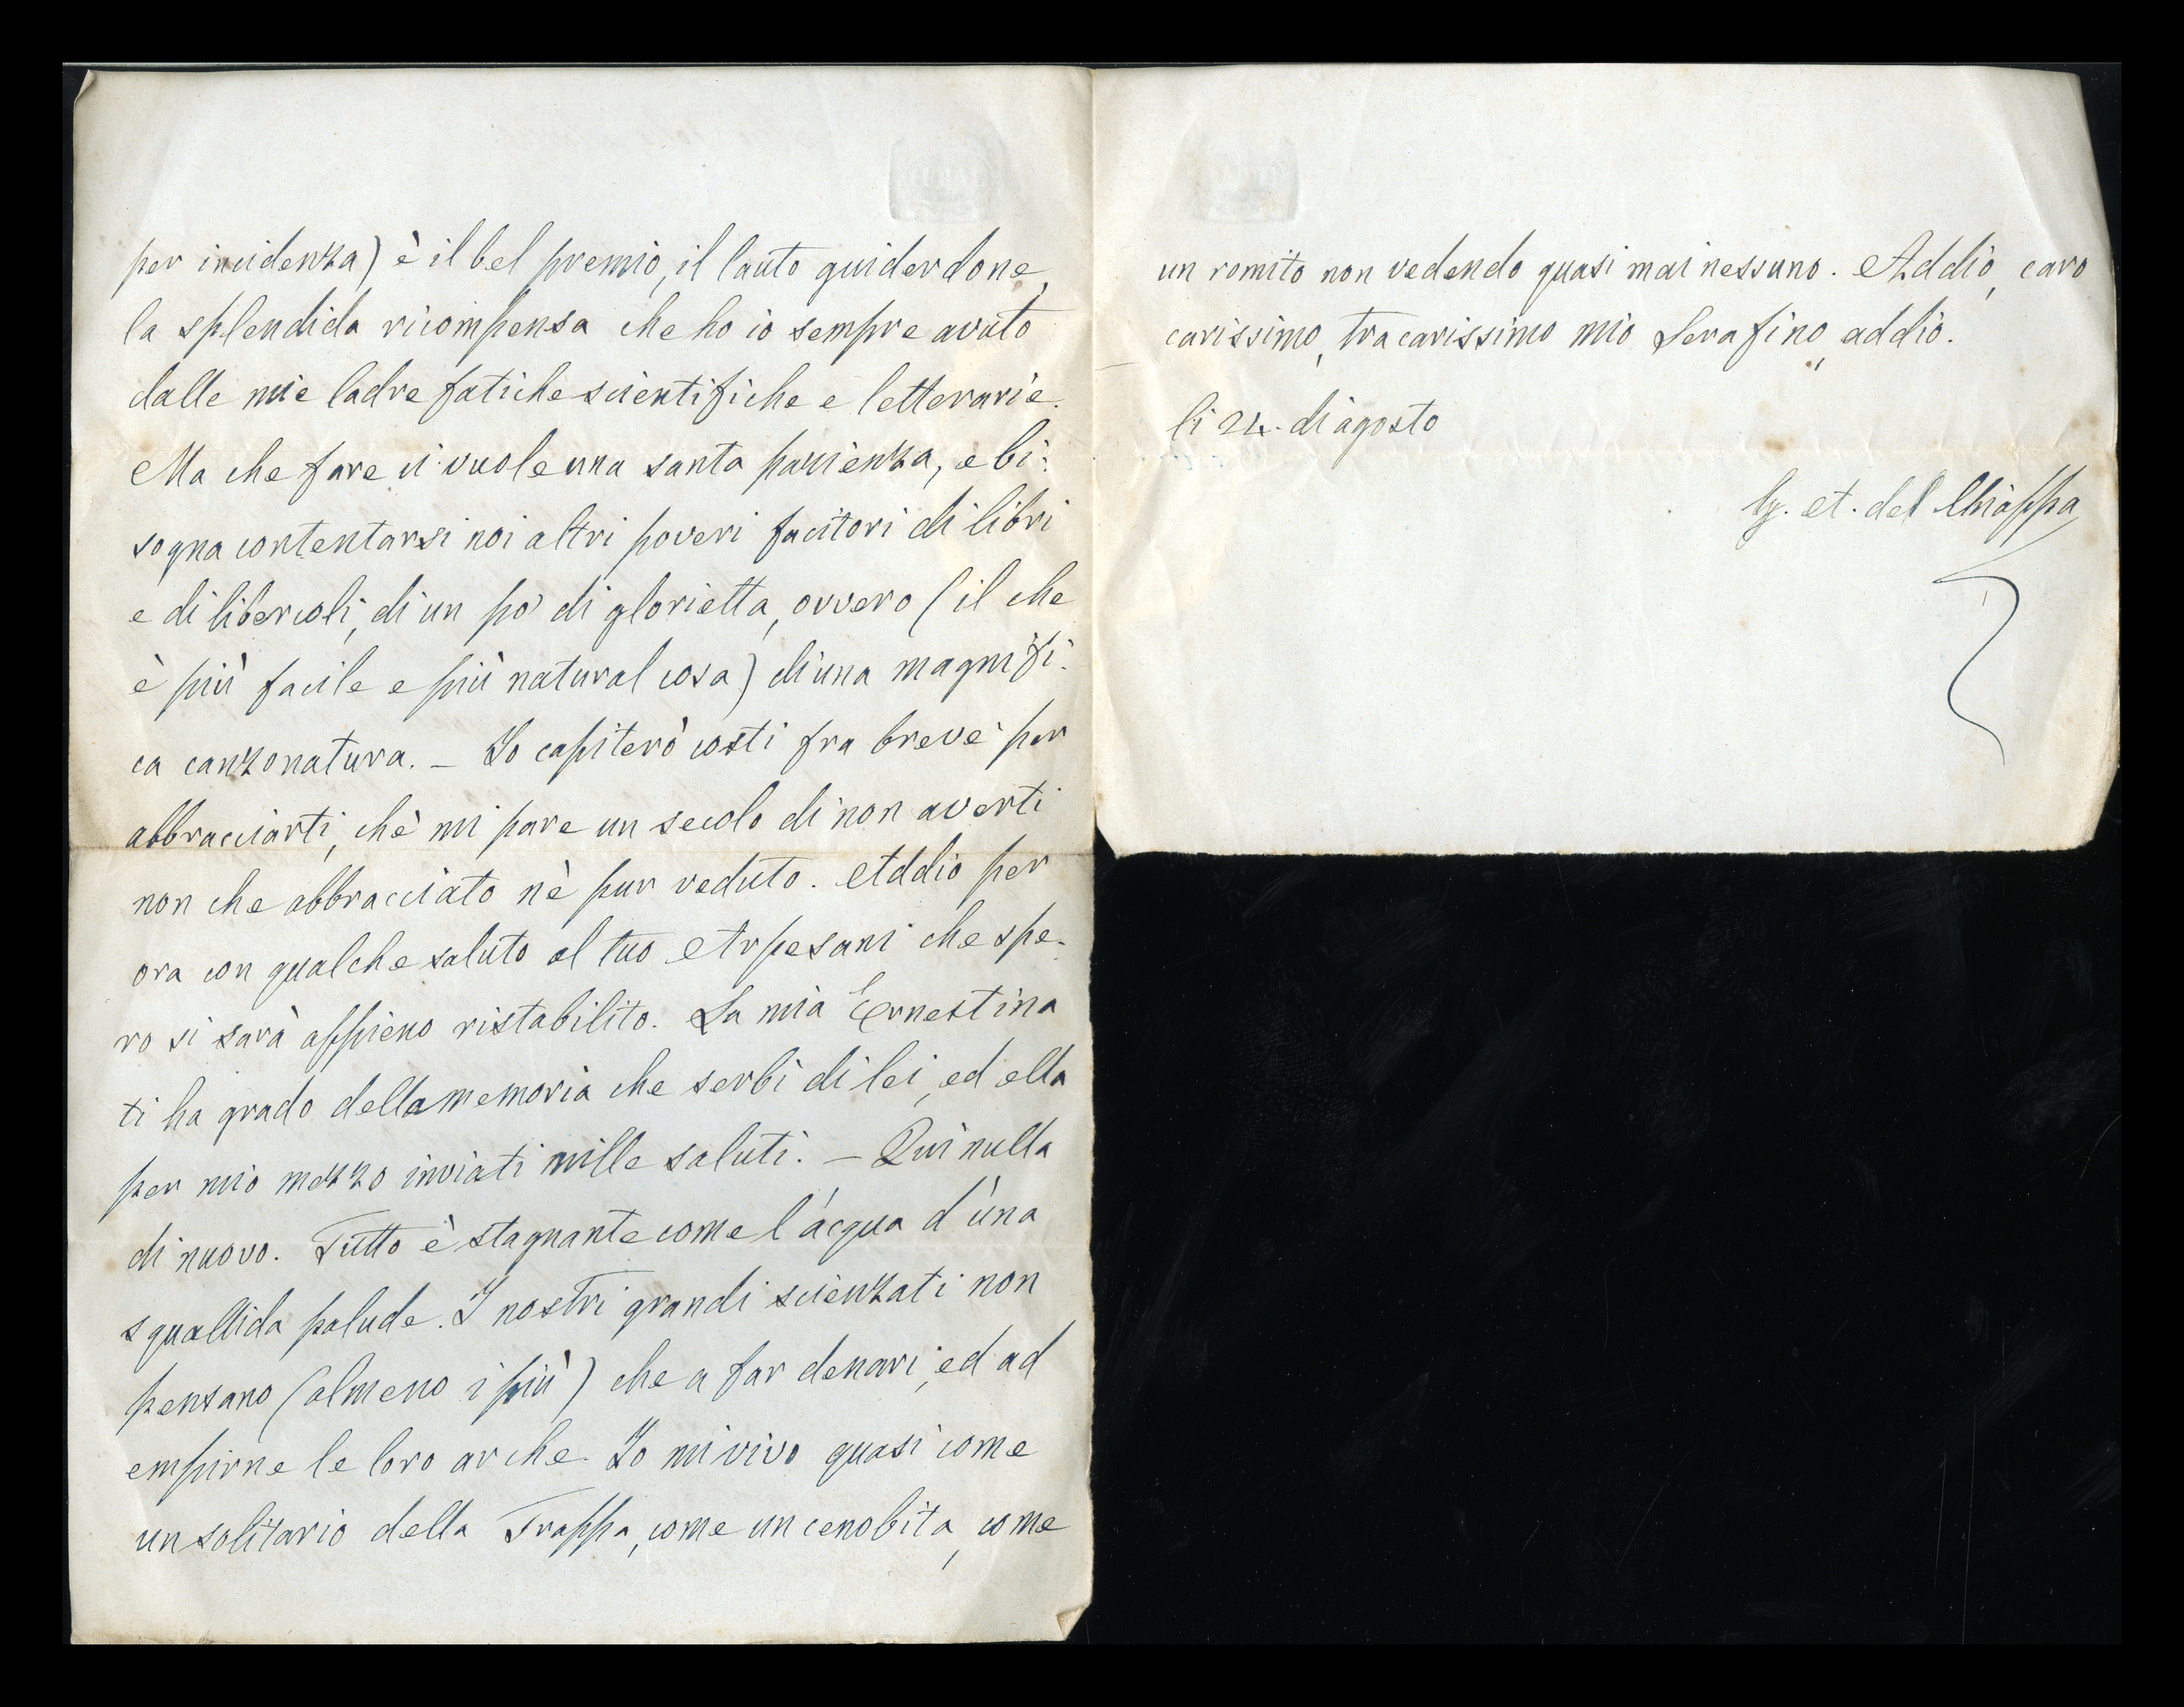 per incidenza) è il bel premio, il lauto guiderdone,
la splendida ricompensa che ho io sempre avuto
dalle mie ladre fatiche scientifiche e letterarie.
Ma che fare ci vuole una santa pazienza, e bi-
sogna contentarsi noi altri poveri facitori di libri
e di libercoli, di un po' di glorietta, ovvero (il che
è più facile e più natural cosa) di una magnifi-
ca canzonatura. – Io capiterò costì fra breve per
abbracciarti, chè mi pare un secolo di non averti
non che abbracciato nè pur veduto. Addio per
ora con qualche saluto al tuo Arpesani che spe-
ro si sarà appieno ristabilito. La mia Ernestina
ti ha grado della memoria che serbi di lei, ed ella
per mio mezzo inviati mille saluti. – Qui nulla
di nuovo. Tutto è stagnante come l'acqua d'una
squallida palude. I nostri grandi scienzati non
pensano (almeno i più) che a far denari, ed ad
empirne le loro arche. Io mi vivo quasi come
un solitario della Trappa, come un cenobita, come
un romito non vedendo quasi mai nessuno. Addio, caro
carissimo, tracarissimo mio Serafino, addio.
li 24. di agosto
G. A. del Chiappa